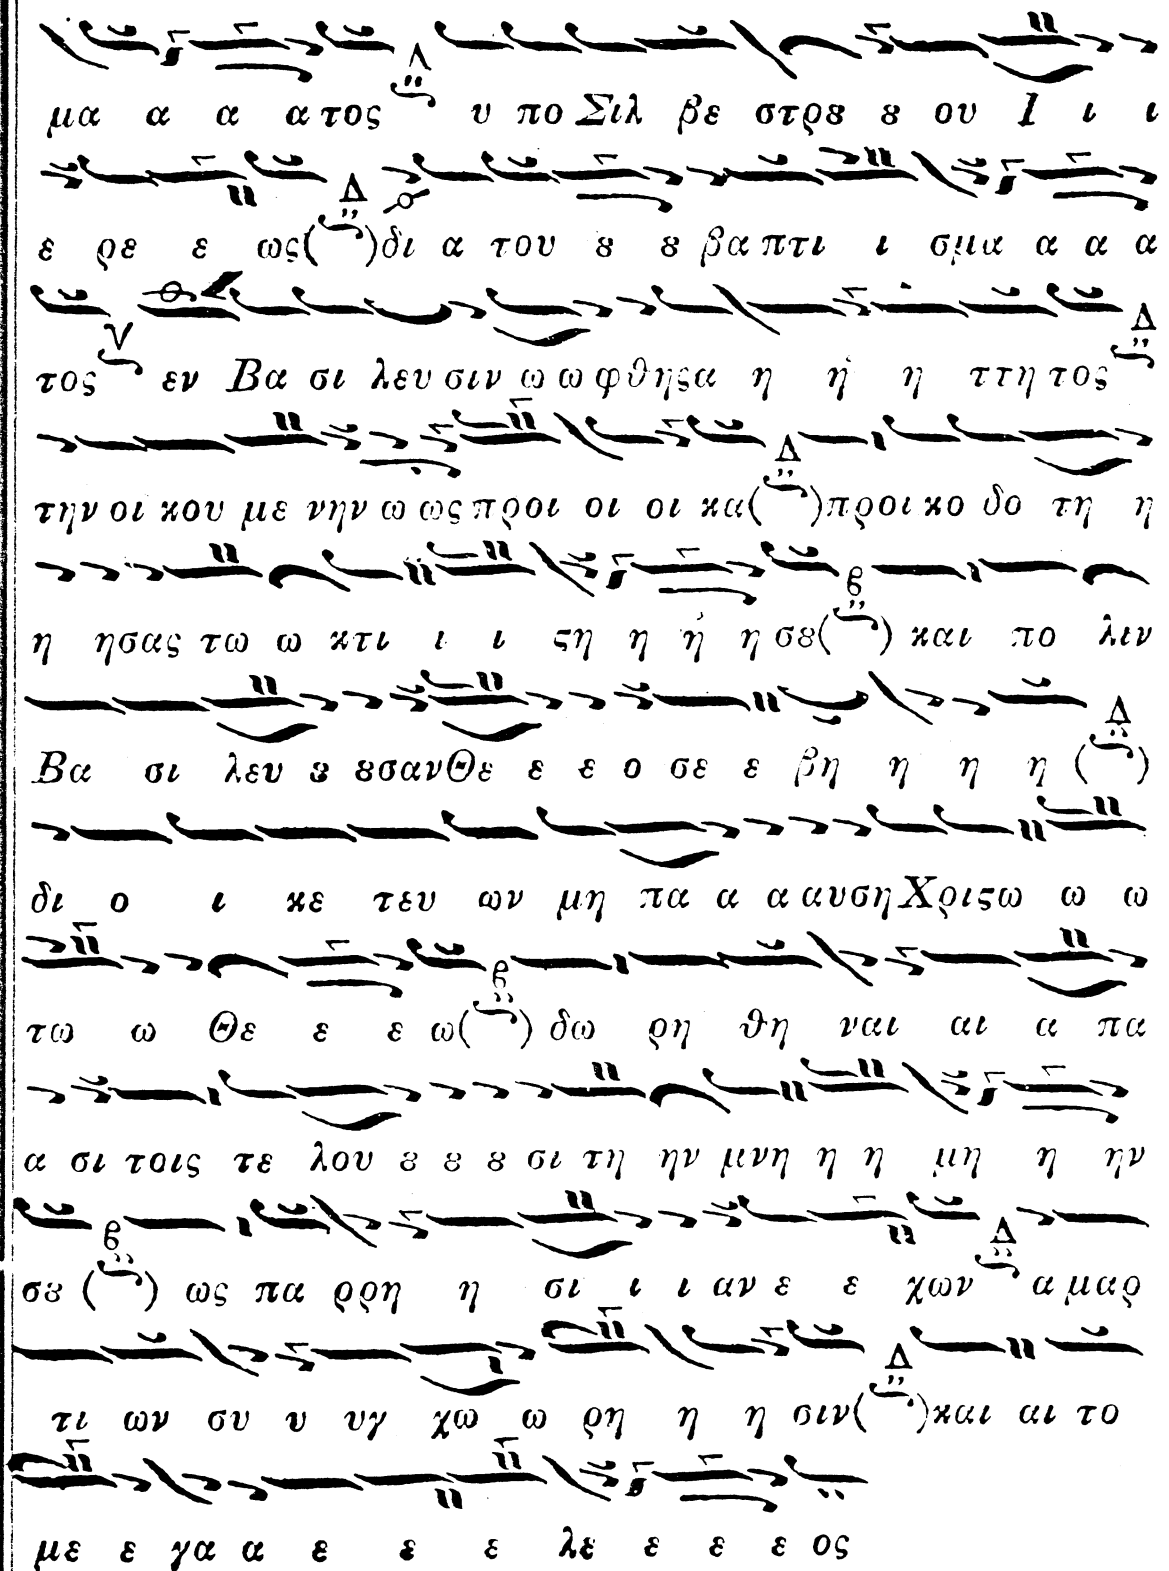 μα α α α τος υ πο Σιλ βε στρȣ ȣ ου Ι ι ι
ε ρε ε ως( )δι α του ȣ ȣ βα πτι ι σμα α α α
τος εν Βα σι λευ σιν ω ω φθηςα η η η ττη τος
την οι κου με νην ω ως προι οι οι κα( )προι κο δο τη η
η ησας τω ω κτι ι ι ςη η η η σȣ( ) και πο λιν
Βα σι λευ ȣ ȣσαν Θε ε ε ο σε ε βη η η η ( )
δι ο ι κε τευ ων μη πα α α αυση Χριςω ω ω
τω ω Θε ε ε ω( ) δω ρη θη ναι αι α πα
α σι τοις τε λου ȣ ȣ ȣ σι τη ην μνη η η μη η ην
σȣ ( ) ως πα ρρη η σι ι ι αν ε ε χων α μαρ
τι ων συ υ υγ χω ω ρη η η σιν( )και αι το
με ε γα α ε ε ε λε ε ε ε ος